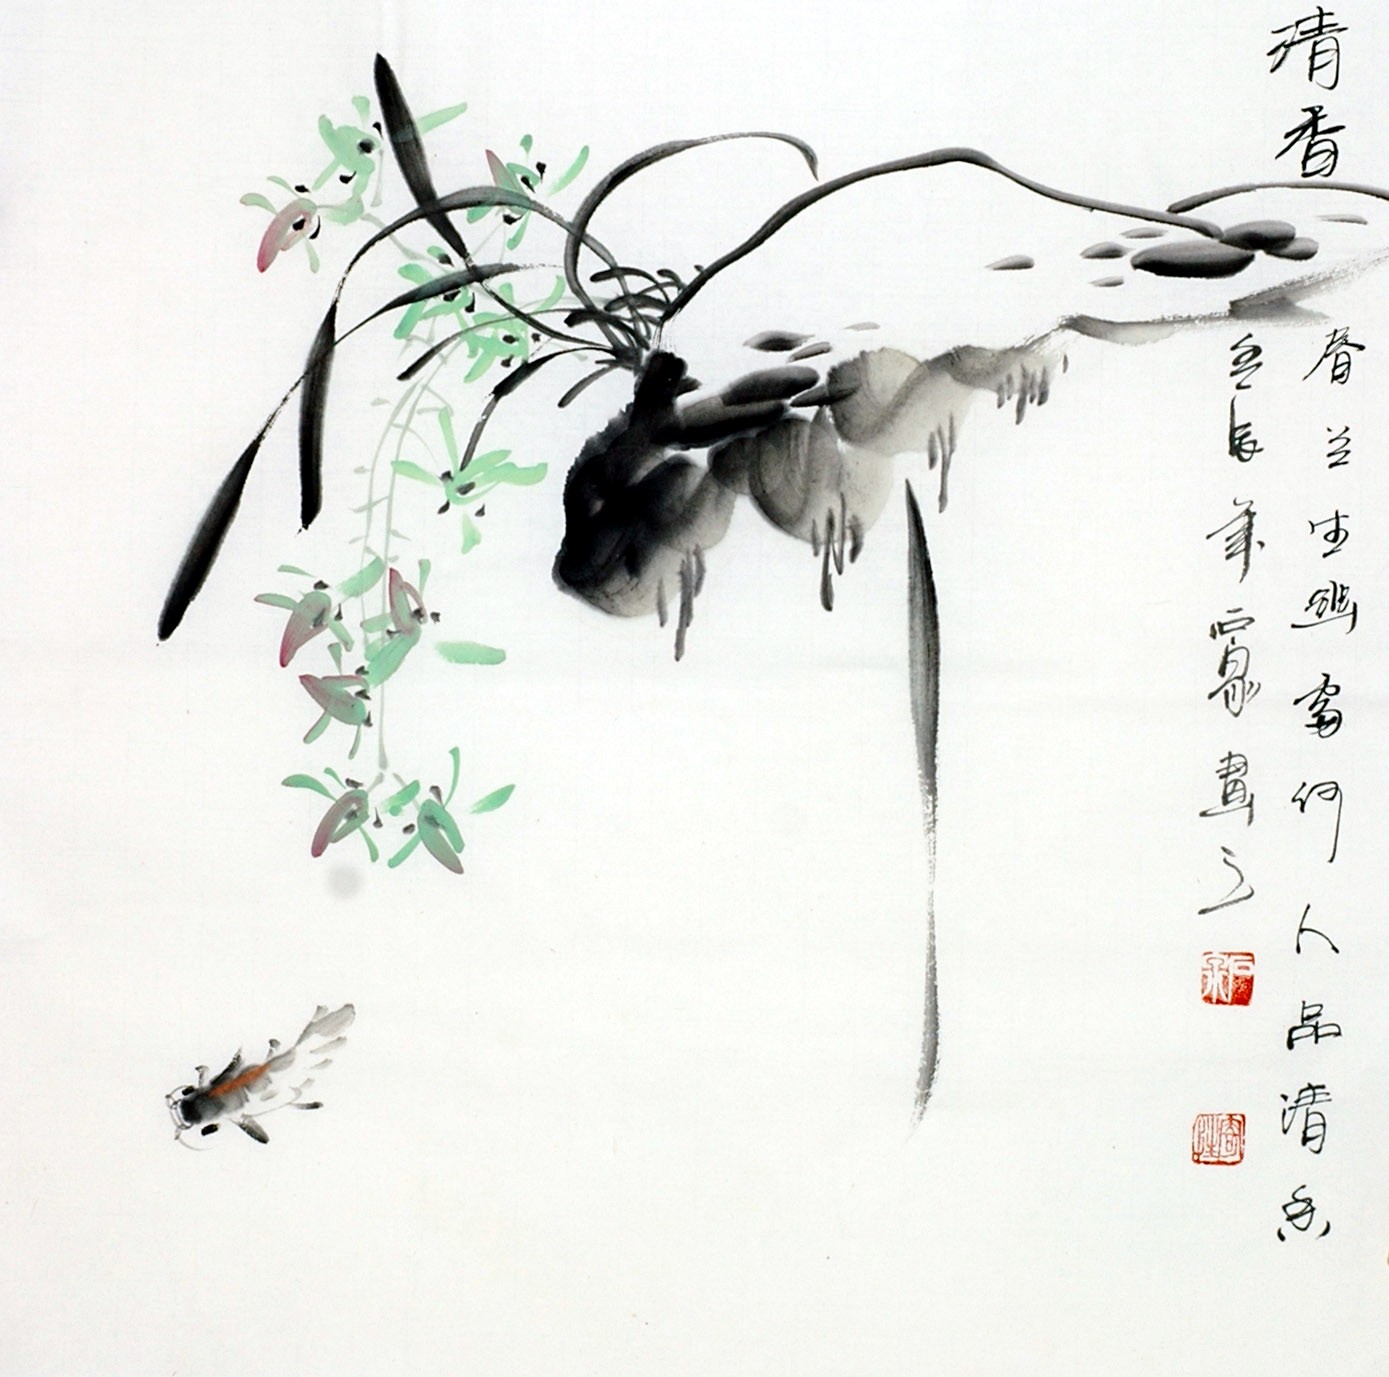 清香
春兰生幽處何人品清香
壬辰年畫之